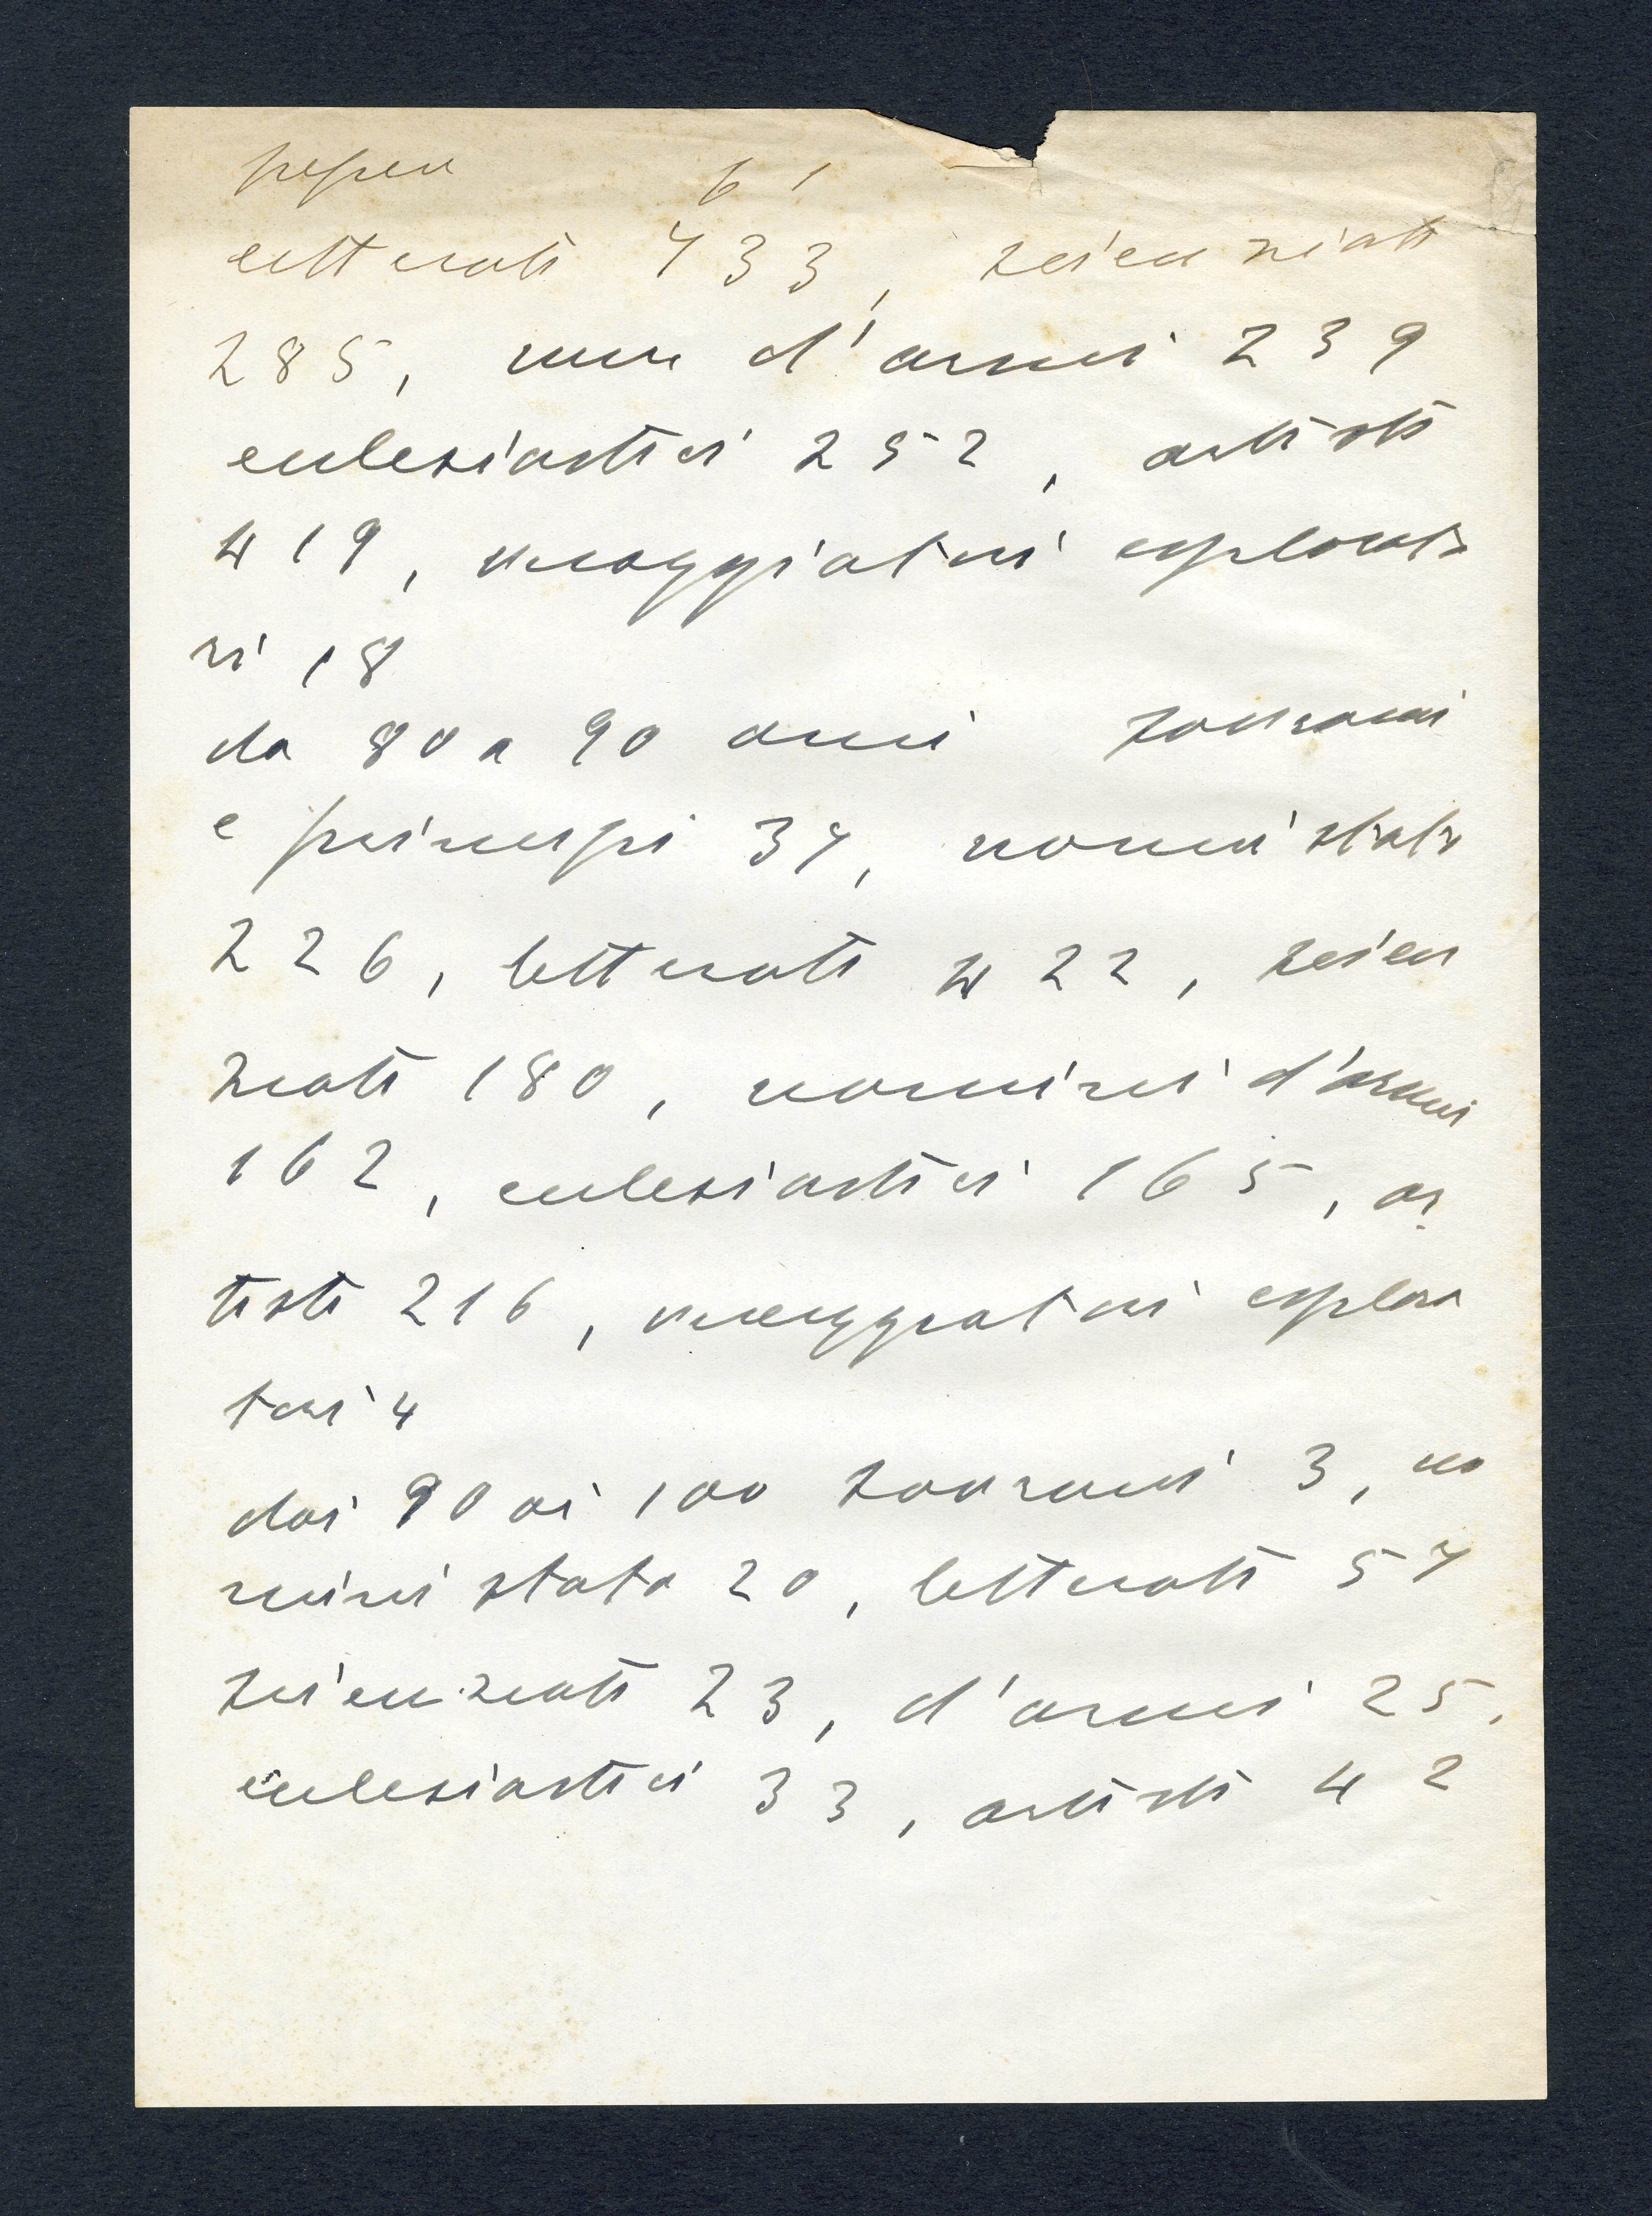 61
letterati 733, scienziati
285, uom d'armi 239
ecclesiastici 252, artisti
419, viaggiatori esplorato
ri 18
da 80 a 90 anni sovrani
e principi 37, uomini stato
226, letterati 422, scien
ziati 180, uomini d'armi
162, ecclesiastici 165, ar
tisti 216, viaggiatori esplora
tori 4
dai 90 ai 100 sovrani 3, uo
mini stato 20, letterati 57
scienziati 23, d'armi 25,
ecclesiastici 33, artisti 42